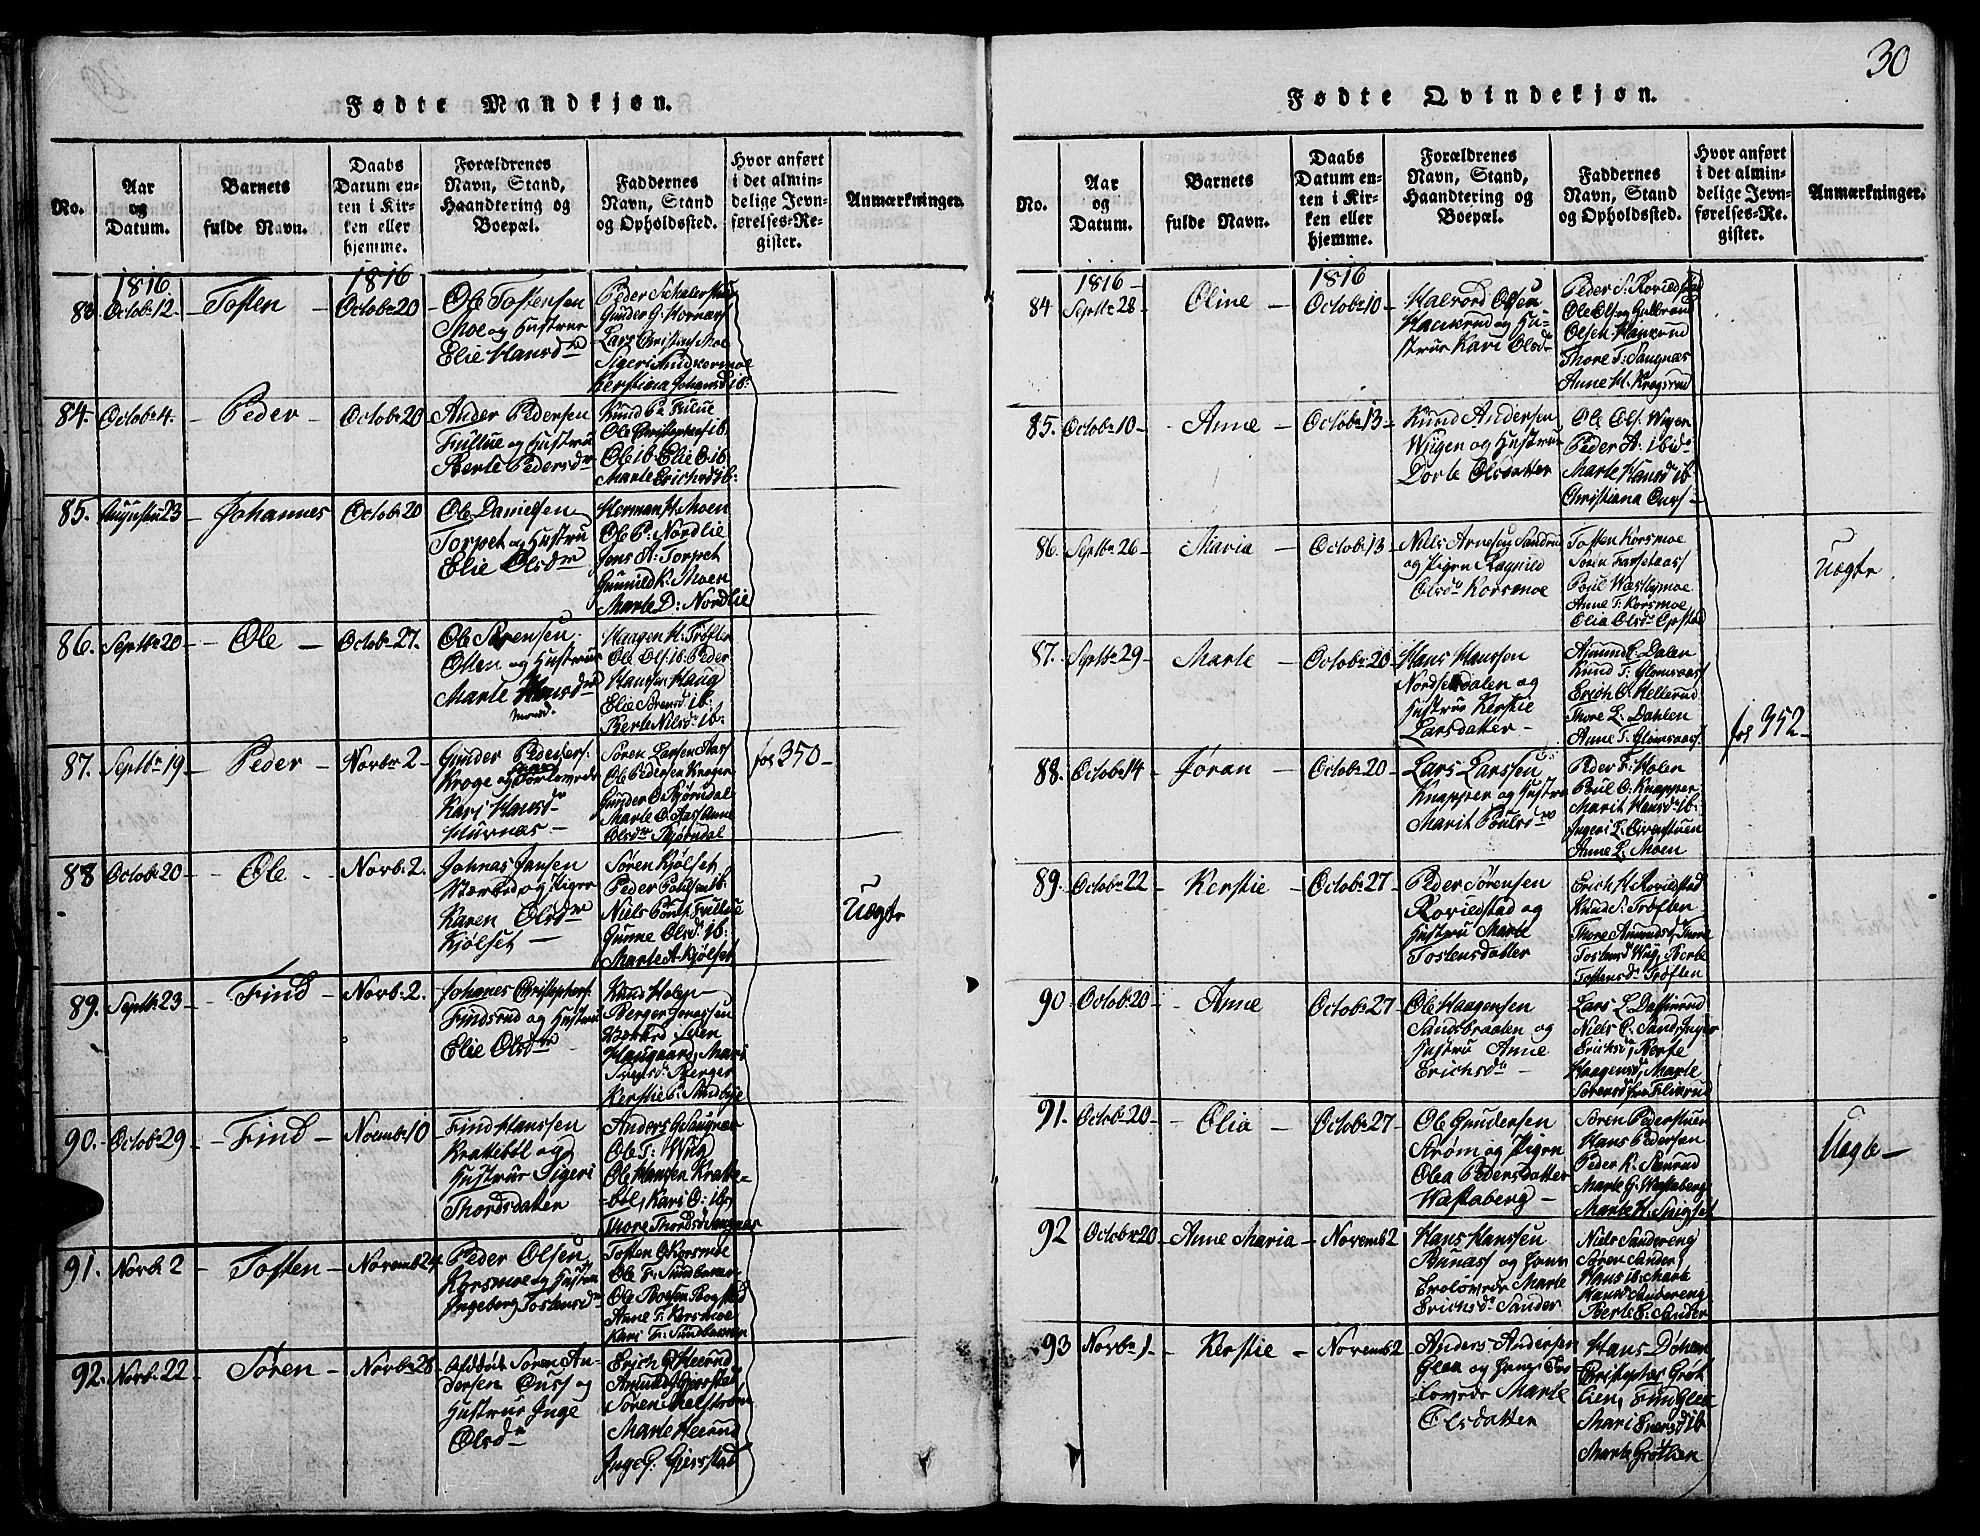 30
Fødte Mandkjøn.
No.
Aar
og
Datum.
Barnets
fulde Navn.
Daabs
Datum en-
ten i Kir-
ken eller
hjemme.
Forældrenes
Navn, Stand,
Haandtering og
Boepæl.
Faddernes
Navn, Stand
og Opholdssted.
Hvor anført
i det almin-
delige Jevn-
førelses-Re-
gister.
Anmærkninger.
1816
1816
83
Octob: 12.
Tosten
Octobr 20
Ole Tostensen
Moe og Hustrue
Elie Hansdr
Gunder G. Kornæs
Lars Christens Moe
Kerstiana Johansd ib:
84.
Octobr 4.
Peder
Octobr 20
Ander Pedersen
Frillue og Hustru
Berte Pedersdr
Knud P. Frilue
Ole Christophers ib.
Ole ib. Elie O: ib
Marte Erichsd ib:
85.
Augustu 23
Johannes
Octob: 20
Ole Danielsen
Torpet og Hustru
Elie Olsdr
Herman H. Moen
Ole P: Nordlie
Jens A: Torpet
Gunnild K: Moen
Marte D: Nordlie
86.
Septbr 20
Ole
Octobr 27.
Ole Sørensen
Osten og Hustrue
Marte Hansdr
Monsd.
Haagen H: Trøften
Ole Ols. ib: Peder
Hansen Haug
Elie Sørensd ib:
Berte Nilsdr ib:
87.
Septbr 19
Peder
Novbr 2
Gunder Peders:
Kroge og Forlovede
Kari Hansdr
Hurnæs
Søren Larsen Aas
Ole Pedersen Kroger
Gunder O. Bjørndal
Marte O. Aas, Anne
Olsdr Bjørndal
fol 350
88
Octob: 20
Ole
Novb: 2.
Johnas Jansen
og Piger
Karen Olsdr
Kjølset
Søren Kjølset
Peder Poulsen ib.
Niels Pouls. Frillue
Gunne Olsdr ib:
Marte A. Kjølset
Uægte
89.
Septbr 23
Find
Novb: 2.
Johanes Christophers
Findsrud og Hustru
Elie Olsdr
Knud Holep
Berger Jonassen
Haugaard, Mari
Kerstie P. Sandbye
90.
Octobr 29
Find
Noembr 10
Find Hanssen
Krattebøl og
Hustrue Sigeri
Thordsdatter
Anders G. Saugnæs
Ole T: Wiig
Ole Hansen Kratte-
bøl, Kari O: ib,
Thore Thordsd Saugnæs
91.
Novb: 2
Tosten
Novemb 24
Peder Olsen
Korsmoe og Hustru
Ingeborg Tostensdr
Tosten O. Korsmoe
Ole F: Sundbaman
Anne T: Korsmoe
Kari F: Sundbaman
92.
Novb: 22
Søren
Novbr 28
Søren An-
dersen Ouss og
Hustrue Inge
Olsdr
Erich G. Heerud
Amund G. Gjerstad
Søren Melstrøm
Marte Heerud
Inge G. Gjerstad
Fødte Qvindekjøn.
No.
Aar
og
Datum.
Barnets
fulde Navn.
Daabs
Datum en-
ten i Kir-
ken eller
hjemme.
Forældrenes
Navn, Stand,
Haandtering og
Boepæl.
Faddernes
Navn, Stand
og Opholdssted.
Hvor anført
i det almin-
delige Jevn-
førelses-Re-
gister.
Anmærkninger.
1816
1816
84
Septbr 28
Oline
Octobr 10
Halvord Olsen
Haukrud og Hu-
strue Kari Olsd
Peder S: Rovelstad
Ole Ols. og Gulbrand
Olsen Haukrud
Thore T: Saugnæs
Anne H. Krogsrud
85.
Octobr 10
Anne
Octobr 13
Knud Andersen
Wigen og Hustrue
Dorte Olsdatter
Ole Ols. Wigen
Peder A. ibid
Marte Hansd ib
Christiana Ours
86.
Septbr 26
Maria
Octob: 13
Niels Arnesen Sandrud
og Pigen Ragnild
Olsdr Korsmoe
Tosten Korsmoe
Søren Farsetaas
Poul Westlymoe
Anne T: Korsmoe
Olia Olsdr Opstad
Uægte
87.
Septbr 29
Marte
Octobr 20
Hans Hanssen
Nordsetdalen og
Hustrue Kerstie
Larsdatter
Amund L. Dalen
Knud T: Glomsaas
Erich O: Hellerud
Thore L. Dahlen
Anne T: Glomsaas
fol 352
88.
Octobr 14
Jøran
Octob: 20
Lars Larssen
Knapper og Hustru
Marit Poulsdr
Peder F: Holen
Poul O: Knapper
Marit Hansdr ib:
Ingeri L:
Anne L: Moen
89.
Octobr 22
Kerstie
Octobr 27
Peder Sørensen
Rovelstad og
Hustru Marte
Tostensdatter
Erich H. Rovelstad
Knud S: Trøften
Thore Amundsd, Thore
Tostensd Wiig, Berte
Tostensdr Trøften
90
Octob: 20
Anne
Octobr 27
Ole Haagensen
Sandsbraaten og
Hustru Anne
Erichsdr
Lars L.
Niels P. Sand, Inger
Erichsdr, Berte
Haagensd, Marte
91.
Octobr 20
Olia
Octobr 27
Ole Gundersen
Strøm og Pigen
Olea Pedersdatter
Wæstaberg
Søren Pederstuen
Hans Pedersen
Peder K:
Marte G: Wæstaberg
Marte H. Spigset
Uægte
92
Octobr 20
Anne Maria
Novemb 2
Hans Hanssen
Bunæss og hans
Erichsdr Sander
Niels Sandereng
Søren Sander,
Hans ib: Marte
Hansd Sandereng
Berte E: Sander
93
Novbr 1
Kerstie
Novemb 2
Anders Andersen
Glea og hans For-
lovede Marte
Olsdatter
Hans Døhen
Christophes Grøt
lien, Find Glea
Mari Evensd ib
Marte Grøtlien